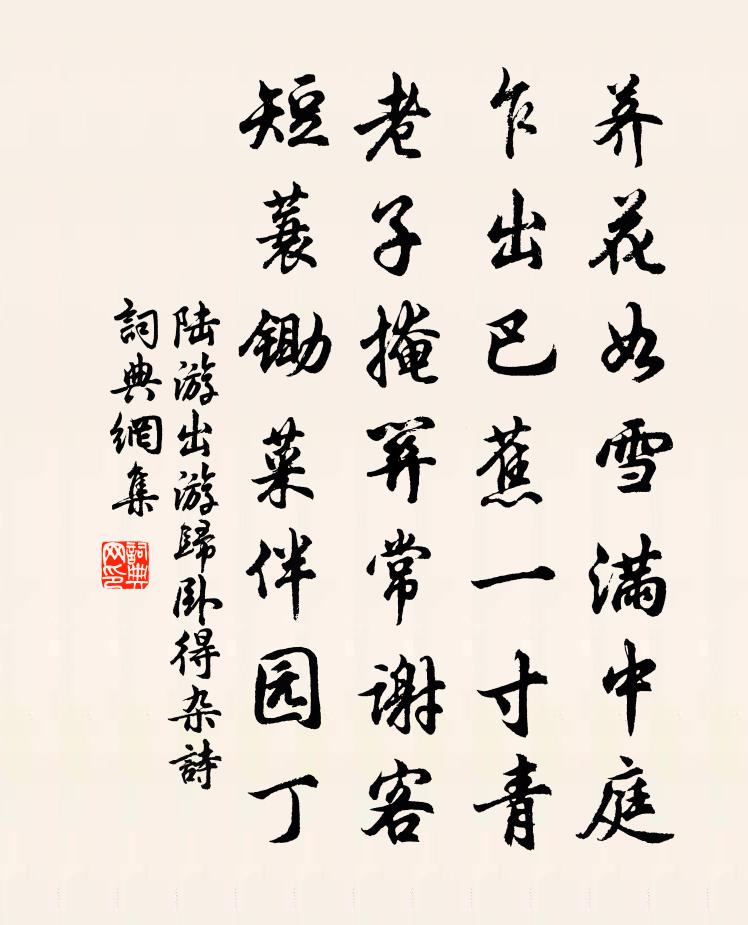 荠花如雪满中庭
乍出巴蕉一寸青
老子掩关常谢客
短蓑锄菜伴园丁
陆游出游歸卧得杂詩
詞典網集
詞典网印